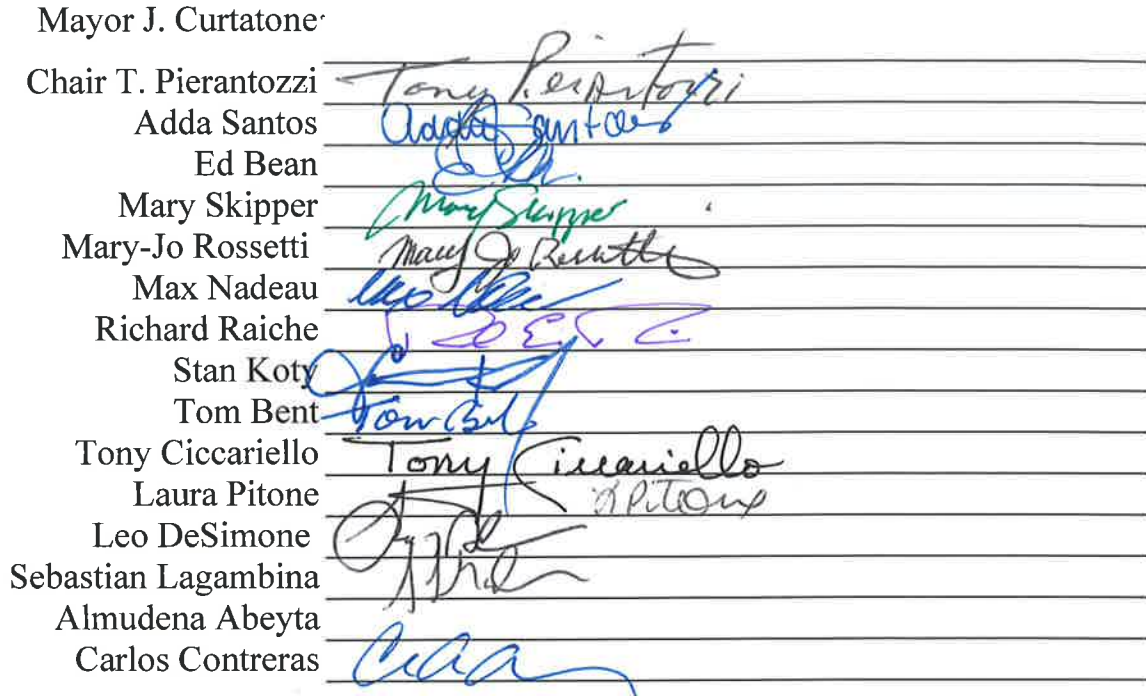 Mayor J. Curtatone
Chair T. Pierantozzi Tony Pierantozzi
Adda Santos Adda Santos
Ed Bean
Mary Skipper Mary Skipper
Mary-Jo Rossetti Mary Jo Rossetti
Max Nadeau
Richard Raiche
Stan Koty
Tom Bent Tom Bent
Tony Ciccariello Tony Ciccariello
Laura Pitone L Pitone
Leo DeSimone
Sebastian Lagambina
Almudena Abeyta
Carlos Contreras